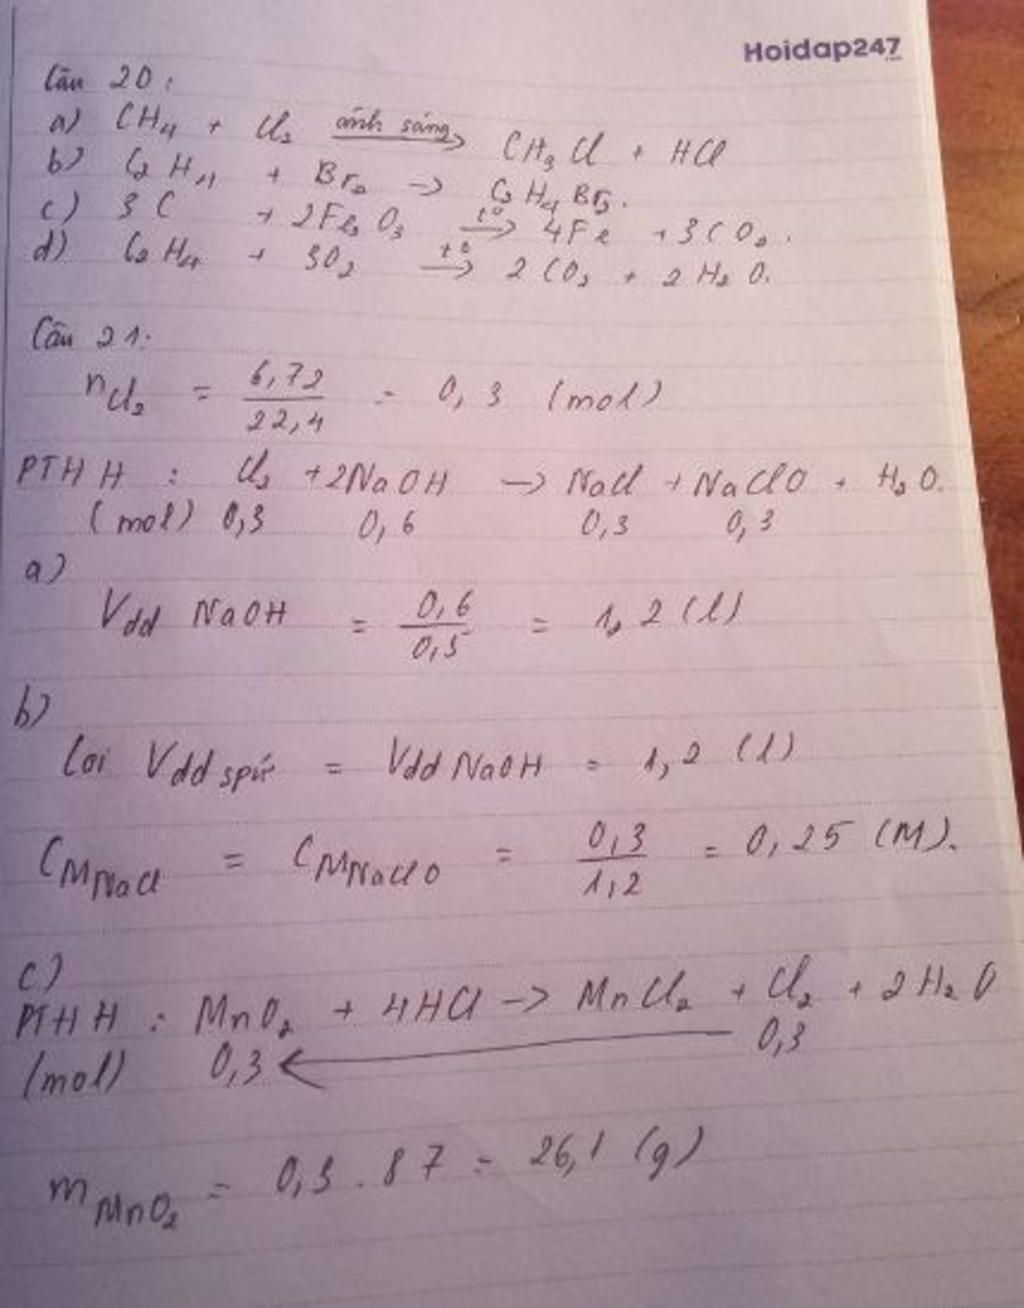 Hoidap247
Câu 20:
a) CH₄ + Cl₂ ánh sáng→ CH₃Cl + HCl
b) C₂H₄ + Br₂ → C₂H₄Br₂.
c) 3C + 2Fe₂O₃ t°→ 4Fe + 3CO₂.
d) C₂H₄ + 3O₂ t°→ 2CO₂ + 2H₂O.
Câu 21:
nCl₂ = 6,72/22,4 = 0,3 (mol)
PTHH: Cl₂ + 2NaOH → NaCl + NaClO + H₂O.
(mol) 0,3 0,6 0,3 0,3
a)
Vdd NaOH = 0,6/0,5 = 1,2 (l)
b)
Coi Vdd spứ = Vdd NaOH = 1,2 (l)
CM NaCl = CM NaClO = 0,3/1,2 = 0,25 (M).
c)
PTHH: MnO₂ + 4HCl → MnCl₂ + Cl₂ + 2H₂O
(mol) 0,3 ← 0,3
mMnO₂ = 0,3 . 87 = 26,1 (g)